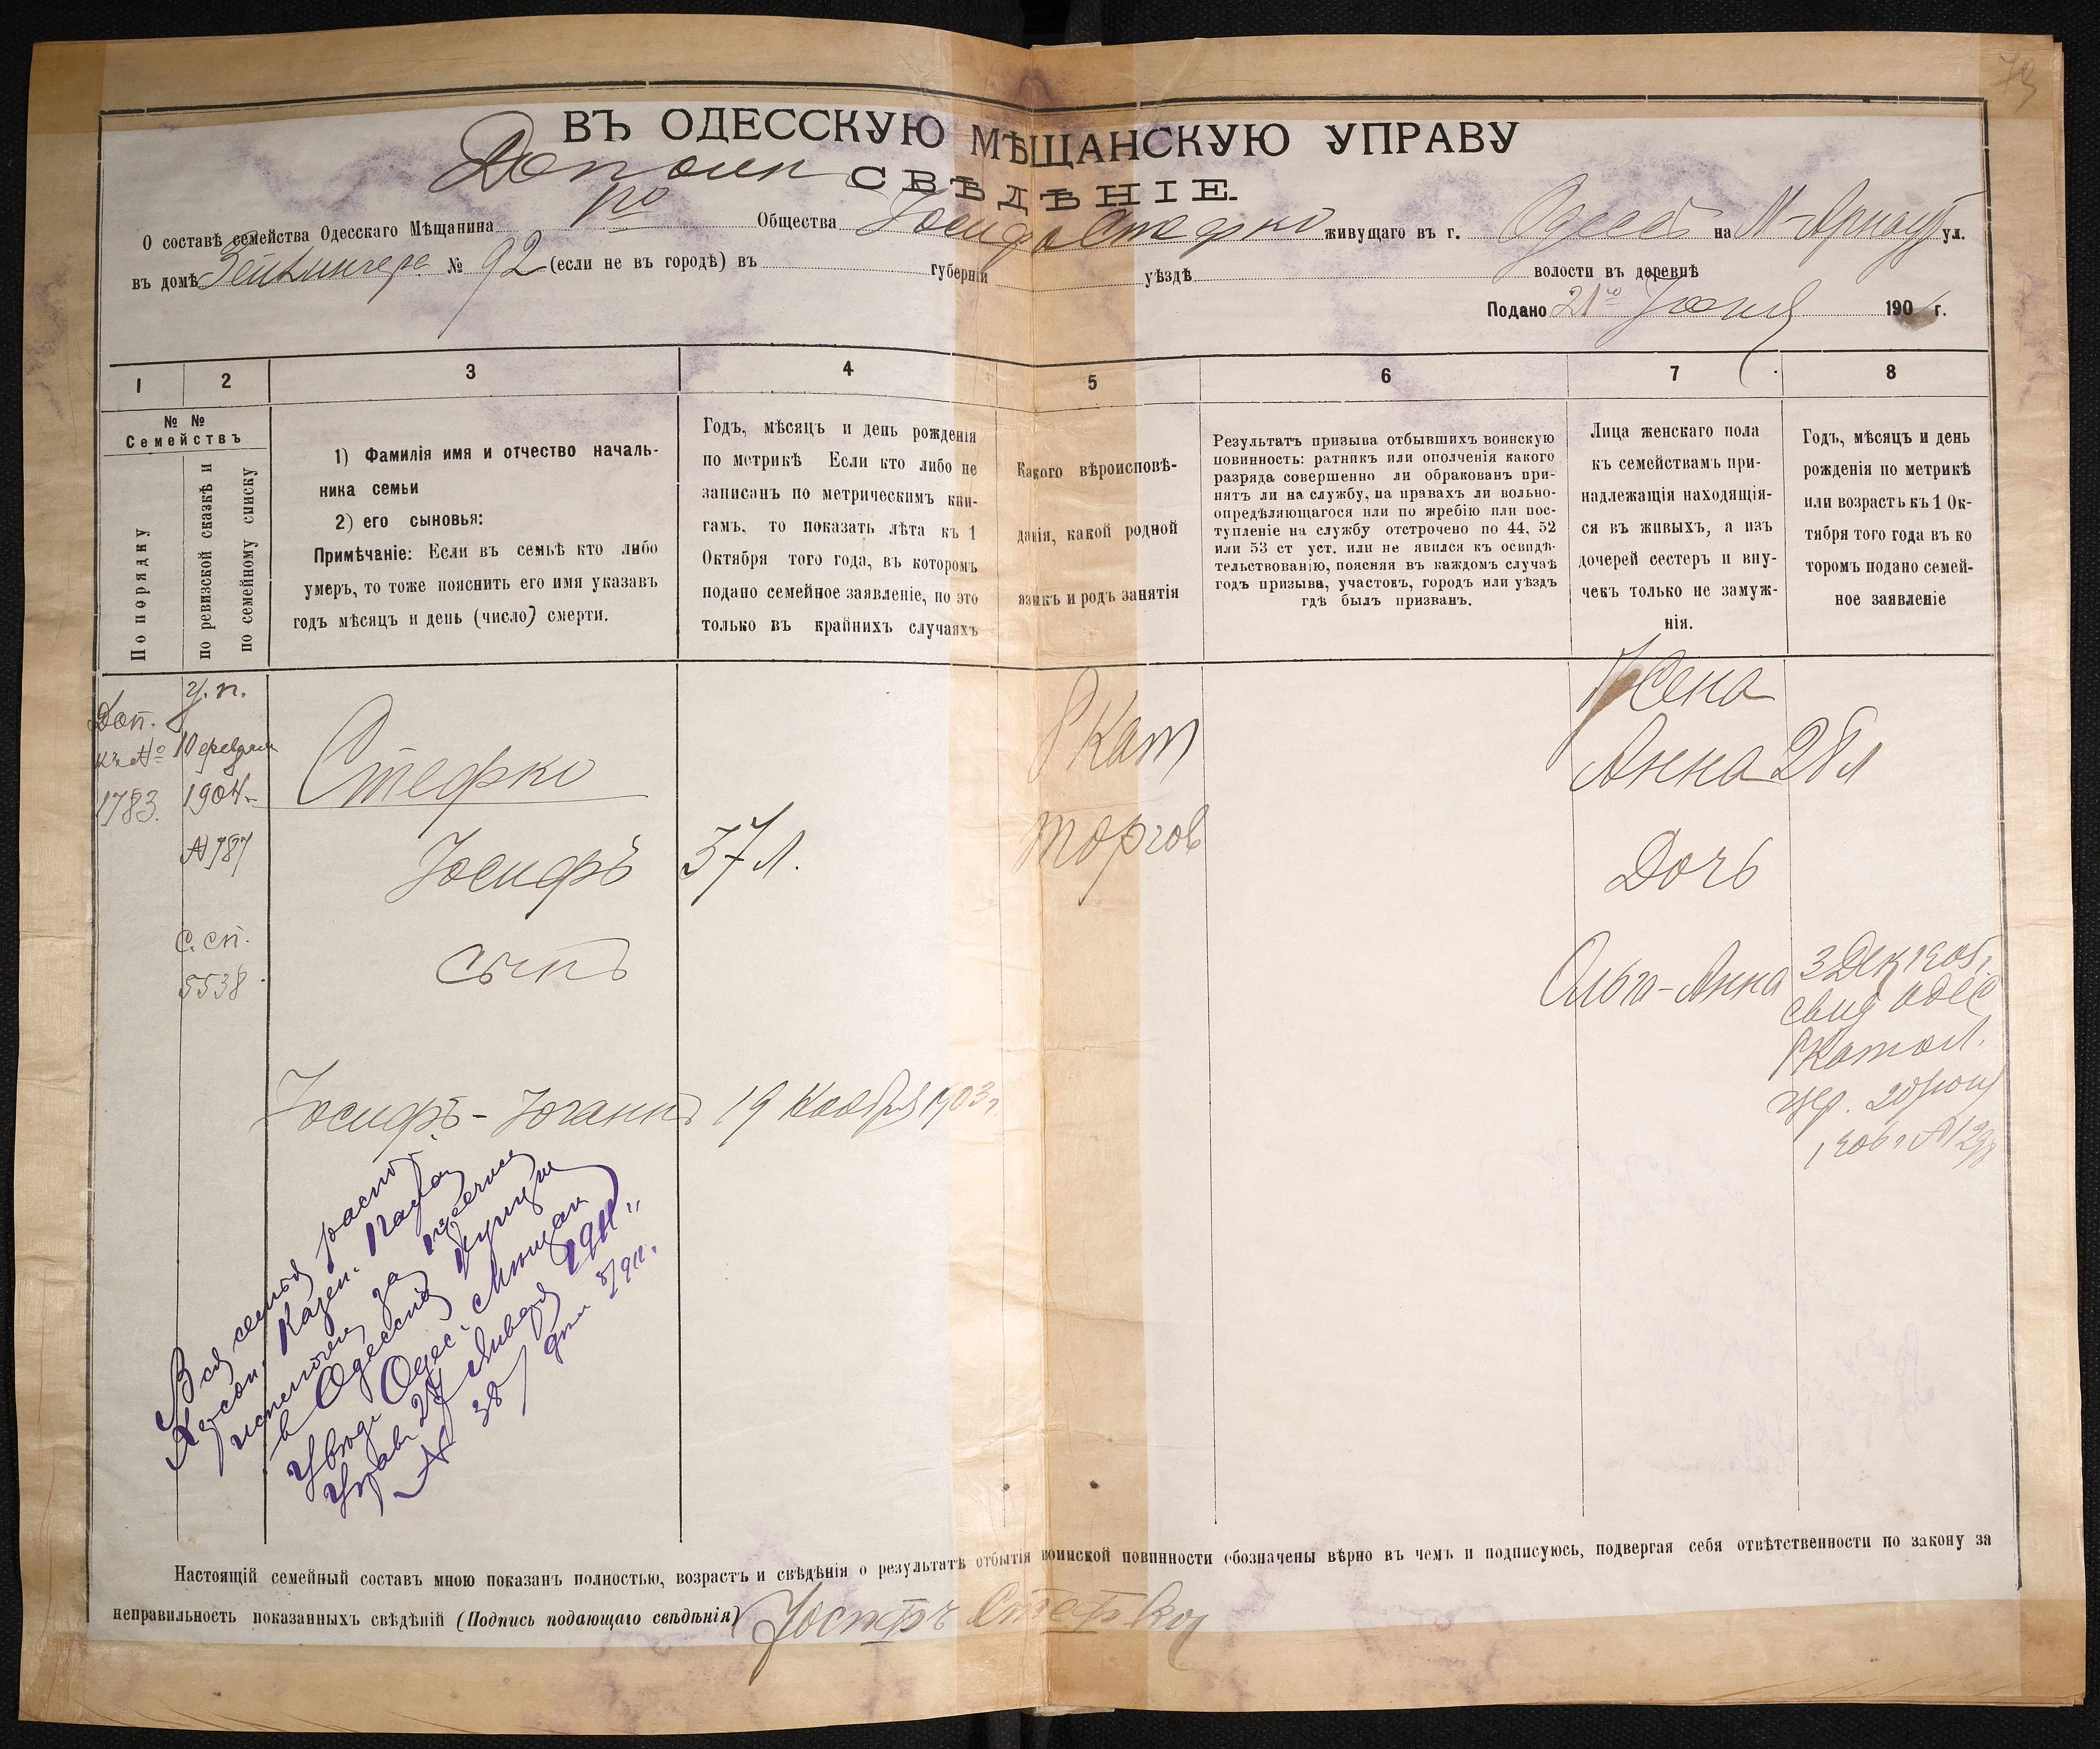 79
ВЪ ОДЕССКУЮ МѢЩАНСКУЮ УПРАВУ
Дополн СВѢДѢНІЕ.
О составѣ семейства Одесскаго Мѣщанина по Общества Іосифа Стефко живущаго въ г. Одессѣ на М-Арнаут ул.
въ домѣ Зейлингера № 92 (если не въ городѣ) въ губерніи уѣздѣ волости въ деревнѣ
Подано 21го Іюня 190 г.
1 2 3 4 5 6 7 8
№ №
Семействъ
По порядку
по ревизской сказкѣ и
по семейному списку
1) Фамилія имя и отчество началь-
ника семьи
2) его сыновья:
Примѣчаніе: Если въ семьѣ кто либо
умеръ, то тоже пояснить его имя указавъ
годъ мѣсяцъ и день (число) смерти.
Годъ, мѣсяцъ и день рожденія
по метрикѣ Если кто либо не
записанъ по метрическимъ кни-
гамъ, то показать лѣта къ 1
Октября того года, въ которомъ
подано семейное заявленіе, но это
только въ крайнихъ случаяхъ
Какого вѣроисповѣ-
данія, какой родной
языкъ и родъ занятія
Результатъ призыва отбывшихъ воинскую
повинность: ратникъ или ополченія какого
разряда совершенно ли обракованъ при-
нятъ ли на службу, на правахъ ли вольно-
опредѣляющагося или по жребію или пос-
тупленіе на службу отстрочено по 44, 52
или 53 ст уст. или не явился къ освидѣ-
тельствованію, поясняя въ каждомъ случаѣ
годъ призыва, участокъ, городъ или уѣздъ
гдѣ былъ призванъ.
Лица женскаго пола
къ семействамъ при-
надлежащія находящія-
ся въ живыхъ, а изъ
дочерей сестеръ и вну-
чекъ только не замуж-
нія.
Годъ, мѣсяцъ и день
рожденія по метрикѣ
или возрасть къ 1 Ок-
тября того года въ ко
торомъ подано семей-
ное заявленіе
Доп.
къ №
1783.
у. п.
10 февраля
1904
№ 787
С. сп.
5538
Стефко
Іосифъ 37 л.
сынъ
Іосифъ-Іоганнъ 19 Ноября 1903 г.
РКат
торгов
Жена
Анна 28 л
Дочь
Ольга-Анна
3 Дек 1905 г.
свид Одес
РКатол.
цер. 20 Іюня
1906 г №
Вся семья распор
Херсон. Казен. Палаты
исключен за
в Одесскія Купцы
Увѣд. Одес. Мѣщан
Управ 24 Января 1911 г.
№ 38/ дѣла 1911.
Настоящій семейный составъ мною показанъ полностью, возрастъ и свѣдѣнія о результатѣ отбытія воинской повинности обозначены вѣрно въ чемъ и подписуюсь, подвергая себя отвѣтственности по закону за
неправильность показанныхъ свѣдѣній (Подпись подающаго свѣдѣнія) Іосифъ Стефко